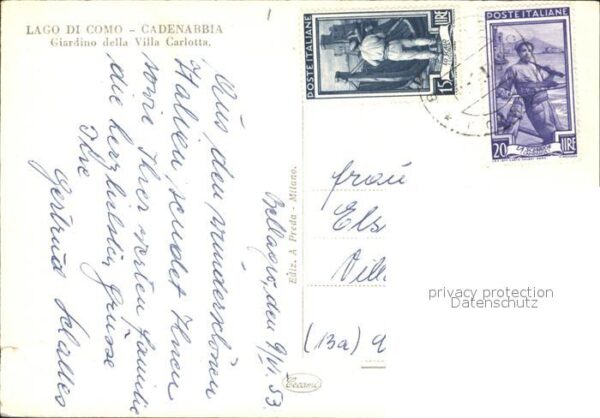 LAGO DI COMO - CADENABBIA
Giardino della Villa Carlotta.
Bellagio, den 9/VI. 53.
Aus dem wunderschönen
Italien sendet Ihnen
sowie Ihrer werten Familie
die herzlichsten Grüsse
Ihre
Gertrud
Ediz. A Preda - Milano.
Cecami
POSTE ITALIANE
15 LIRE
POSTE ITALIANE
20 LIRE
Frau
Els
Vill
(13a)
privacy protection
Datenschutz